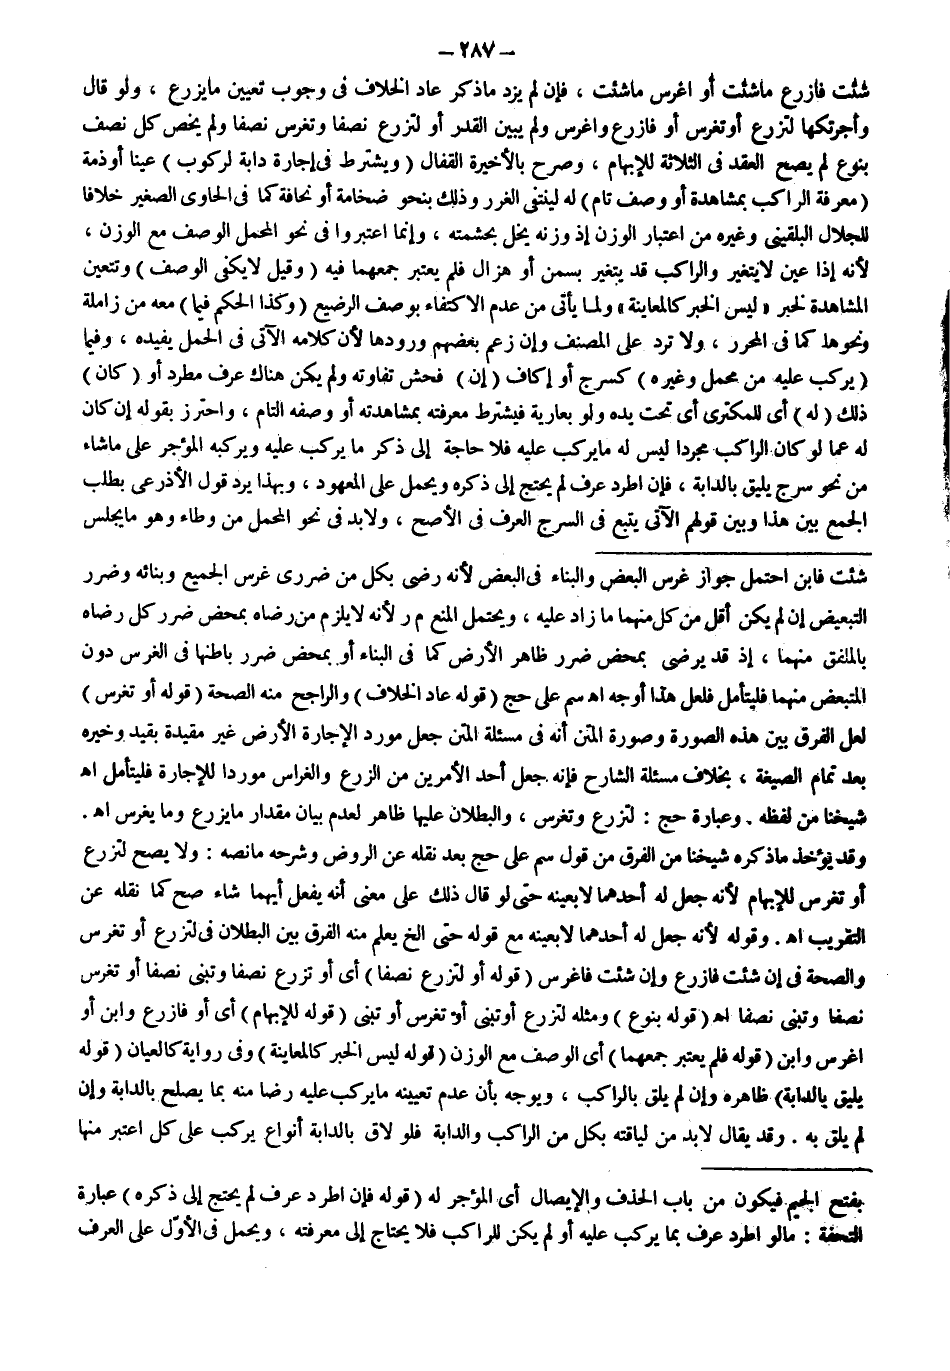 — ٢٨٧ —
شئت فازرع ماشئت أو اغرس ماشئت ، فإن لم يزد ماذكر عاد الخلاف فى وجوب تعيين مايزرع ، ولو قال
وأجرتكها لتزرع أوتغرس أو فازرع واغرس ولم يبين القدر أو لتزرع نصفا وتغرس نصفا ولم يخص كل نصف
بنوع لم يصح العقد فى الثلاثة للإبهام ، وصرح بالأخيرة القفال ( ويشترط فى إجارة دابة لركوب ) عينا أوذمة
( معرفة الراكب بمشاهدة أو وصف تام ) له لينتفى الغرر وذلك بنحو ضخامة أو نحافة كما فى الحاوى الصغير خلافا
للجلال البلقينى وغيره من اعتبار الوزن إذ وزنه يخل بحشمته ، وإنما اعتبروا فى نحو المحمل الوصف مع الوزن ،
لأنه إذا عين لايتغير والراكب قد يتغير بسمن أو هزال فلم يعتبر جمعهما فيه ( وقيل لايكفى الوصف ) وتتعين
المشاهدة لخبر « ليس الخبر كالمعاينة » ولما يأتى من عدم الاكتفاء بوصف الرضيع ( وكذا الحكم فيما ) معه من زاملة
ونحوها كما فى المحرر ، ولا ترد على المصنف وإن زعم بعضهم ورودها لأن كلامه الآتى فى الحمل يفيده ، وفيما
( يركب عليه من محمل وغيره ) كسرج أو إكاف ( إن ) فحش تفاوته ولم يكن هناك عرف مطرد أو ( كان )
ذلك ( له ) أى للمكترى أى تحت يده ولو بعارية فيشترط معرفته بمشاهدته أو وصفه التام ، واحترز بقوله إن كان
له عما لو كان الراكب مجردا ليس له مايركب عليه فلا حاجة إلى ذكر ما يركب عليه ويركبه المؤجر على ماشاء
من نحو سرج يليق بالدابة ، فإن اطرد عرف لم يحتج إلى ذكره ويحمل على المعهود ، وبهذا يرد قول الأذرعى بطلب
الجمع بين هذا وبين قولهم الآتى يتبع فى السرج العرف فى الأصح ، ولابد فى نحو المحمل من وطاء وهو مايجلس
شئت فابن احتمل جواز غرس البعض والبناء فى البعض لأنه رضى بكل من ضررى غرس الجميع وبنائه وضرر
التبعيض إن لم يكن أقل من كل منهما ما زاد عليه ، ويحتمل المنع م ر لأنه لايلزم من رضاه بمحض ضرر كل رضاه
بالملفق منهما ، إذ قد يرضى بمحض ضرر ظاهر الأرض كما فى البناء أو بمحض ضرر باطنها فى الغرس دون
المتبعض منهما فليتأمل فلعل هذا أوجه اه سم على حج ( قوله عاد الخلاف ) والراجح منه الصحة ( قوله أو تغرس )
لعل الفرق بين هذه الصورة وصورة المتن أنه فى مسئلة المتن جعل مورد الإجارة الأرض غير مقيدة بقيد وخيره
بعد تمام الصيغة ، بخلاف مسئلة الشارح فإنه جعل أحد الأمرين من الزرع والغراس موردا للإجارة فليتأمل اه
شيخنا من لفظه . وعبارة حج : لتزرع وتغرس ، والبطلان عليها ظاهر لعدم بيان مقدار مايزرع وما يغرس اه .
وقد يؤخذ ماذكره شيخنا من الفرق من قول سم على حج بعد نقله عن الروض وشرحه مانصه : ولا يصح لتزرع
أو تغرس للإبهام لأنه جعل له أحدهما لابعينه حتى لو قال ذلك على معنى أنه يفعل أيهما شاء صح كما نقله عن
التقريب اه . وقوله لأنه جعل له أحدهما لابعينه مع قوله حتى الخ يعلم منه الفرق بين البطلان فى لتزرع أو تغرس
والصحة فى إن شئت فازرع وإن شئت فاغرس ( قوله أو لتزرع نصفا ) أى أو تزرع نصفا وتبنى نصفا أو تغرس
نصفا وتبنى نصفا اه ( قوله بنوع ) ومثله لتزرع أوتبنى أو تغرس أو تبنى ( قوله للإبهام ) أى أو فازرع وابن أو
اغرس وابن ( قوله فلم يعتبر جمعهما ) أى الوصف مع الوزن ( قوله ليس الخبر كالمعاينة ) وفى رواية كالعيان ( قوله
يليق بالدابة ) ظاهره وإن لم يلق بالراكب ، ويوجه بأن عدم تعيينه مايركب عليه رضا منه بما يصلح بالدابة وإن
لم يلق به . وقد يقال لابد من لياقته بكل من الراكب والدابة فلو لاق بالدابة أنواع يركب على كل اعتبر منها
بفتح الجيم فيكون من باب الحذف والإيصال أى المؤجر له ( قوله فإن اطرد عرف لم يحتج إلى ذكره ) عبارة
التحفة : مالو اطرد عرف بما يركب عليه أو لم يكن للراكب فلا يحتاج إلى معرفته ، ويحمل فى الأوّل على العرف